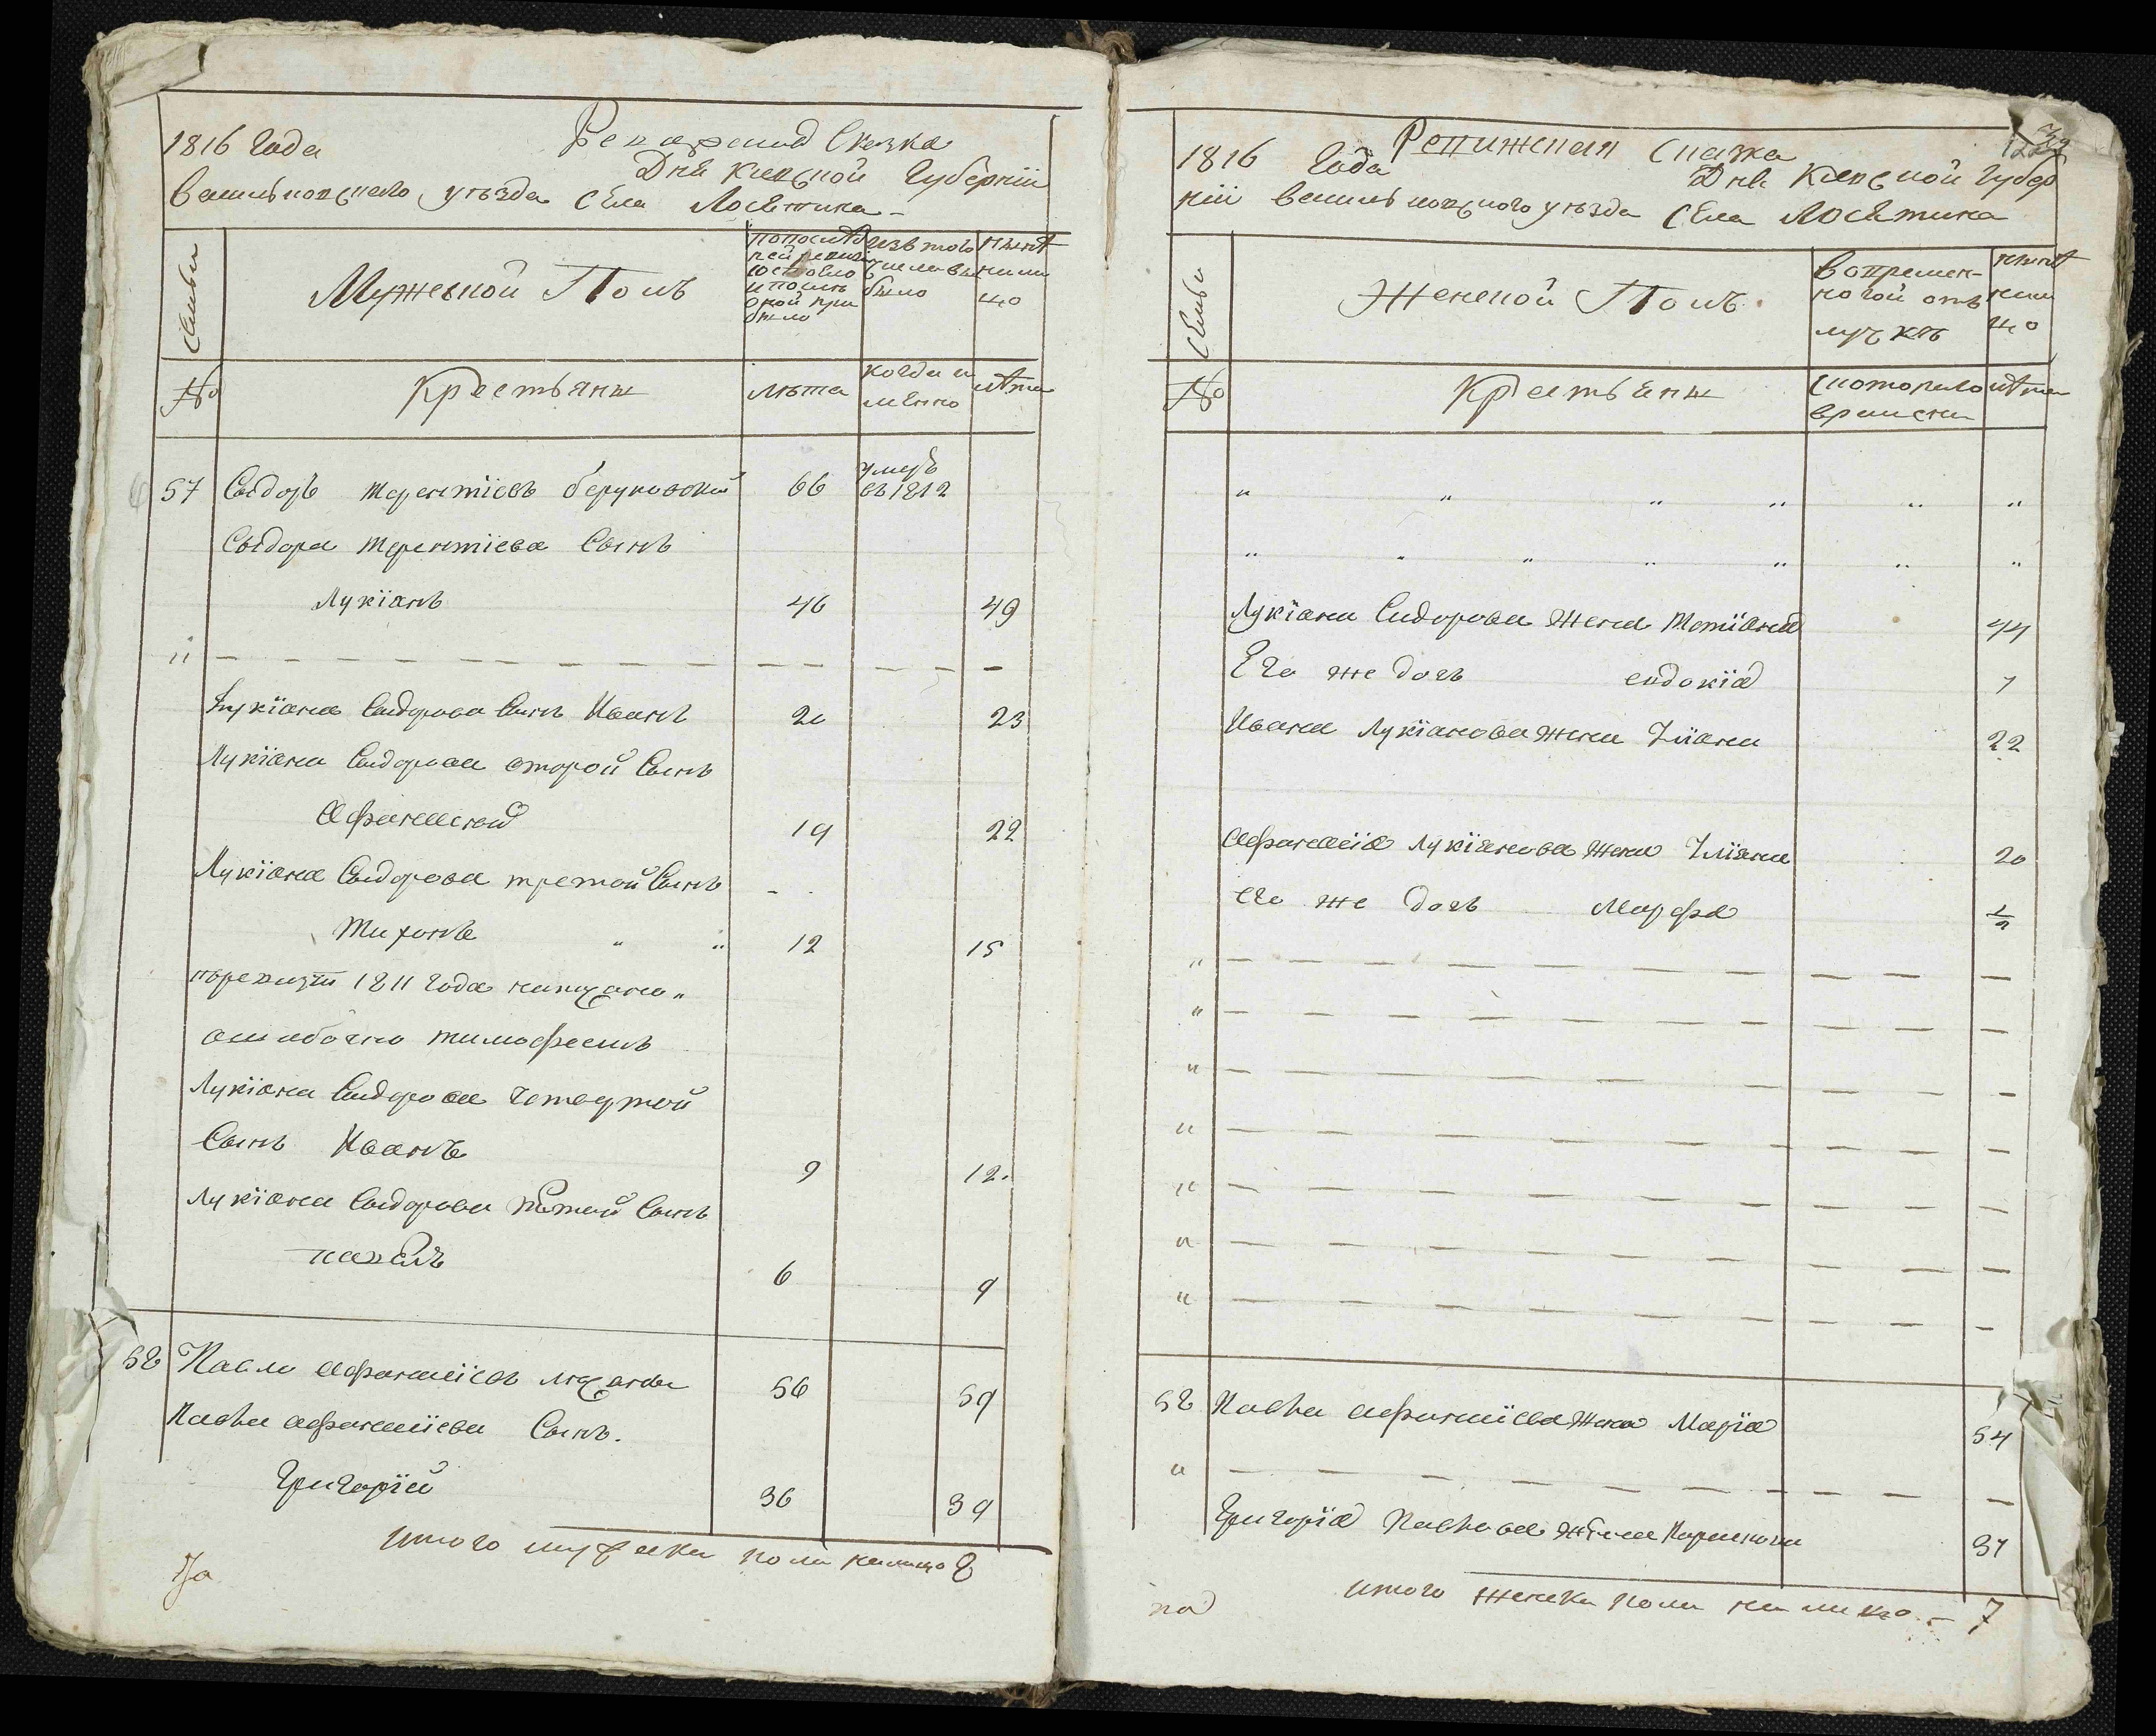 1816 Года Ревижская Сказка
Дня Киевской Губернии
Васильковского уезда Села Лосятина
Семьи
Мужеской Полъ
по последней ревизии состояло и после оной прибыло
изъ того числа выбыло
ныне налицо
№
Крестьяне
лѣта
когда именно
лѣта
57 Сидоръ Терентіевъ 66 умеръ въ 1812
Сидора Терентіева Сынъ
Лукіанъ 46 49
Лукіана Сидорова Сынъ Иванъ 20 23
Лукіана Сидорова второй Сынъ
Афанасий 19 22
Лукіана Сидорова третой Сынъ
Тихонъ 12 15
1811 Года написано
ошибочно тимофеемъ
Лукіана Сидорова четвертой
Сынъ Иванъ 9 12
Лукіана Сидорова пятой Сынъ
павелъ 6 9
58 Павло Афанасіевъ 56 59
Павла Афанасіева Сынъ
Григорій 36 39
итого мужеска пола налицо 8
За
1816 Года Ревижская Сказка
Дня Киевской Губер
нии Васильковского уезда Села Лосятина
Семьи
Женской Полъ
во временной отлучкѣ
ныне налицо
№
Крестьяне
с которого времени
лѣта
Лукіана Сидорова жена Татіана 44
Его же дочь евдокія 7
Ивана Лукіанова жена Уліана 22
Афанасія Лукіанова жена Уліана 20
Его же дочь Марфа 1/2
58 Павла Афанасіева жена Марія 54
Григорія Павлова жена 37
итого женска пола на лицо 7